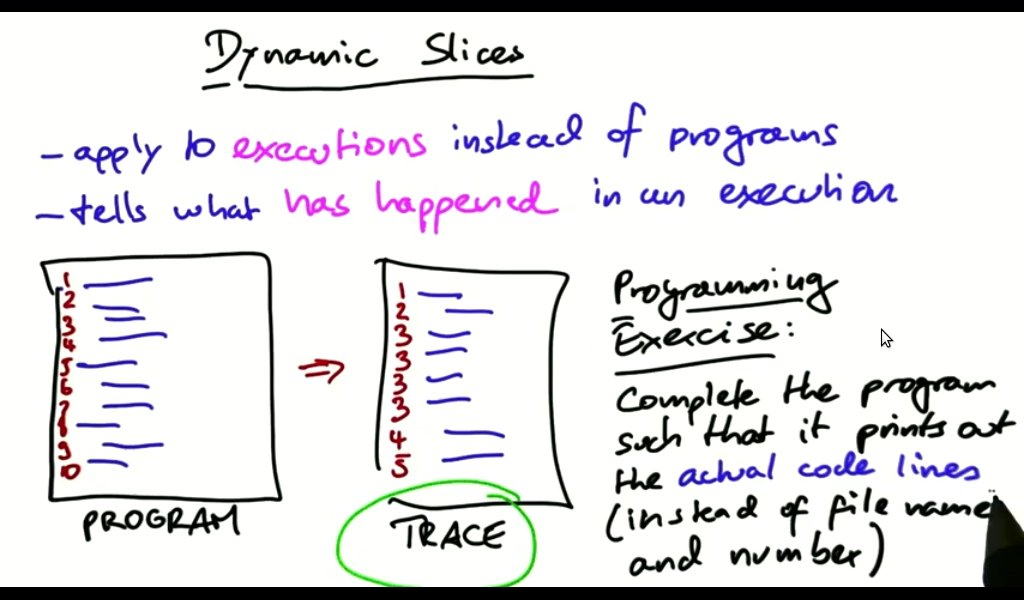 Dynamic Slices
- apply to executions instead of programs
- tells what has happened in an execution
1
2
3
4
5
6
7
8
9
10
PROGRAM
⇒
1
2
3
3
3
3
4
5
TRACE
Programming
Exercise:
Complete the program
such that it prints out
the actual code lines
(instead of file name
and number)